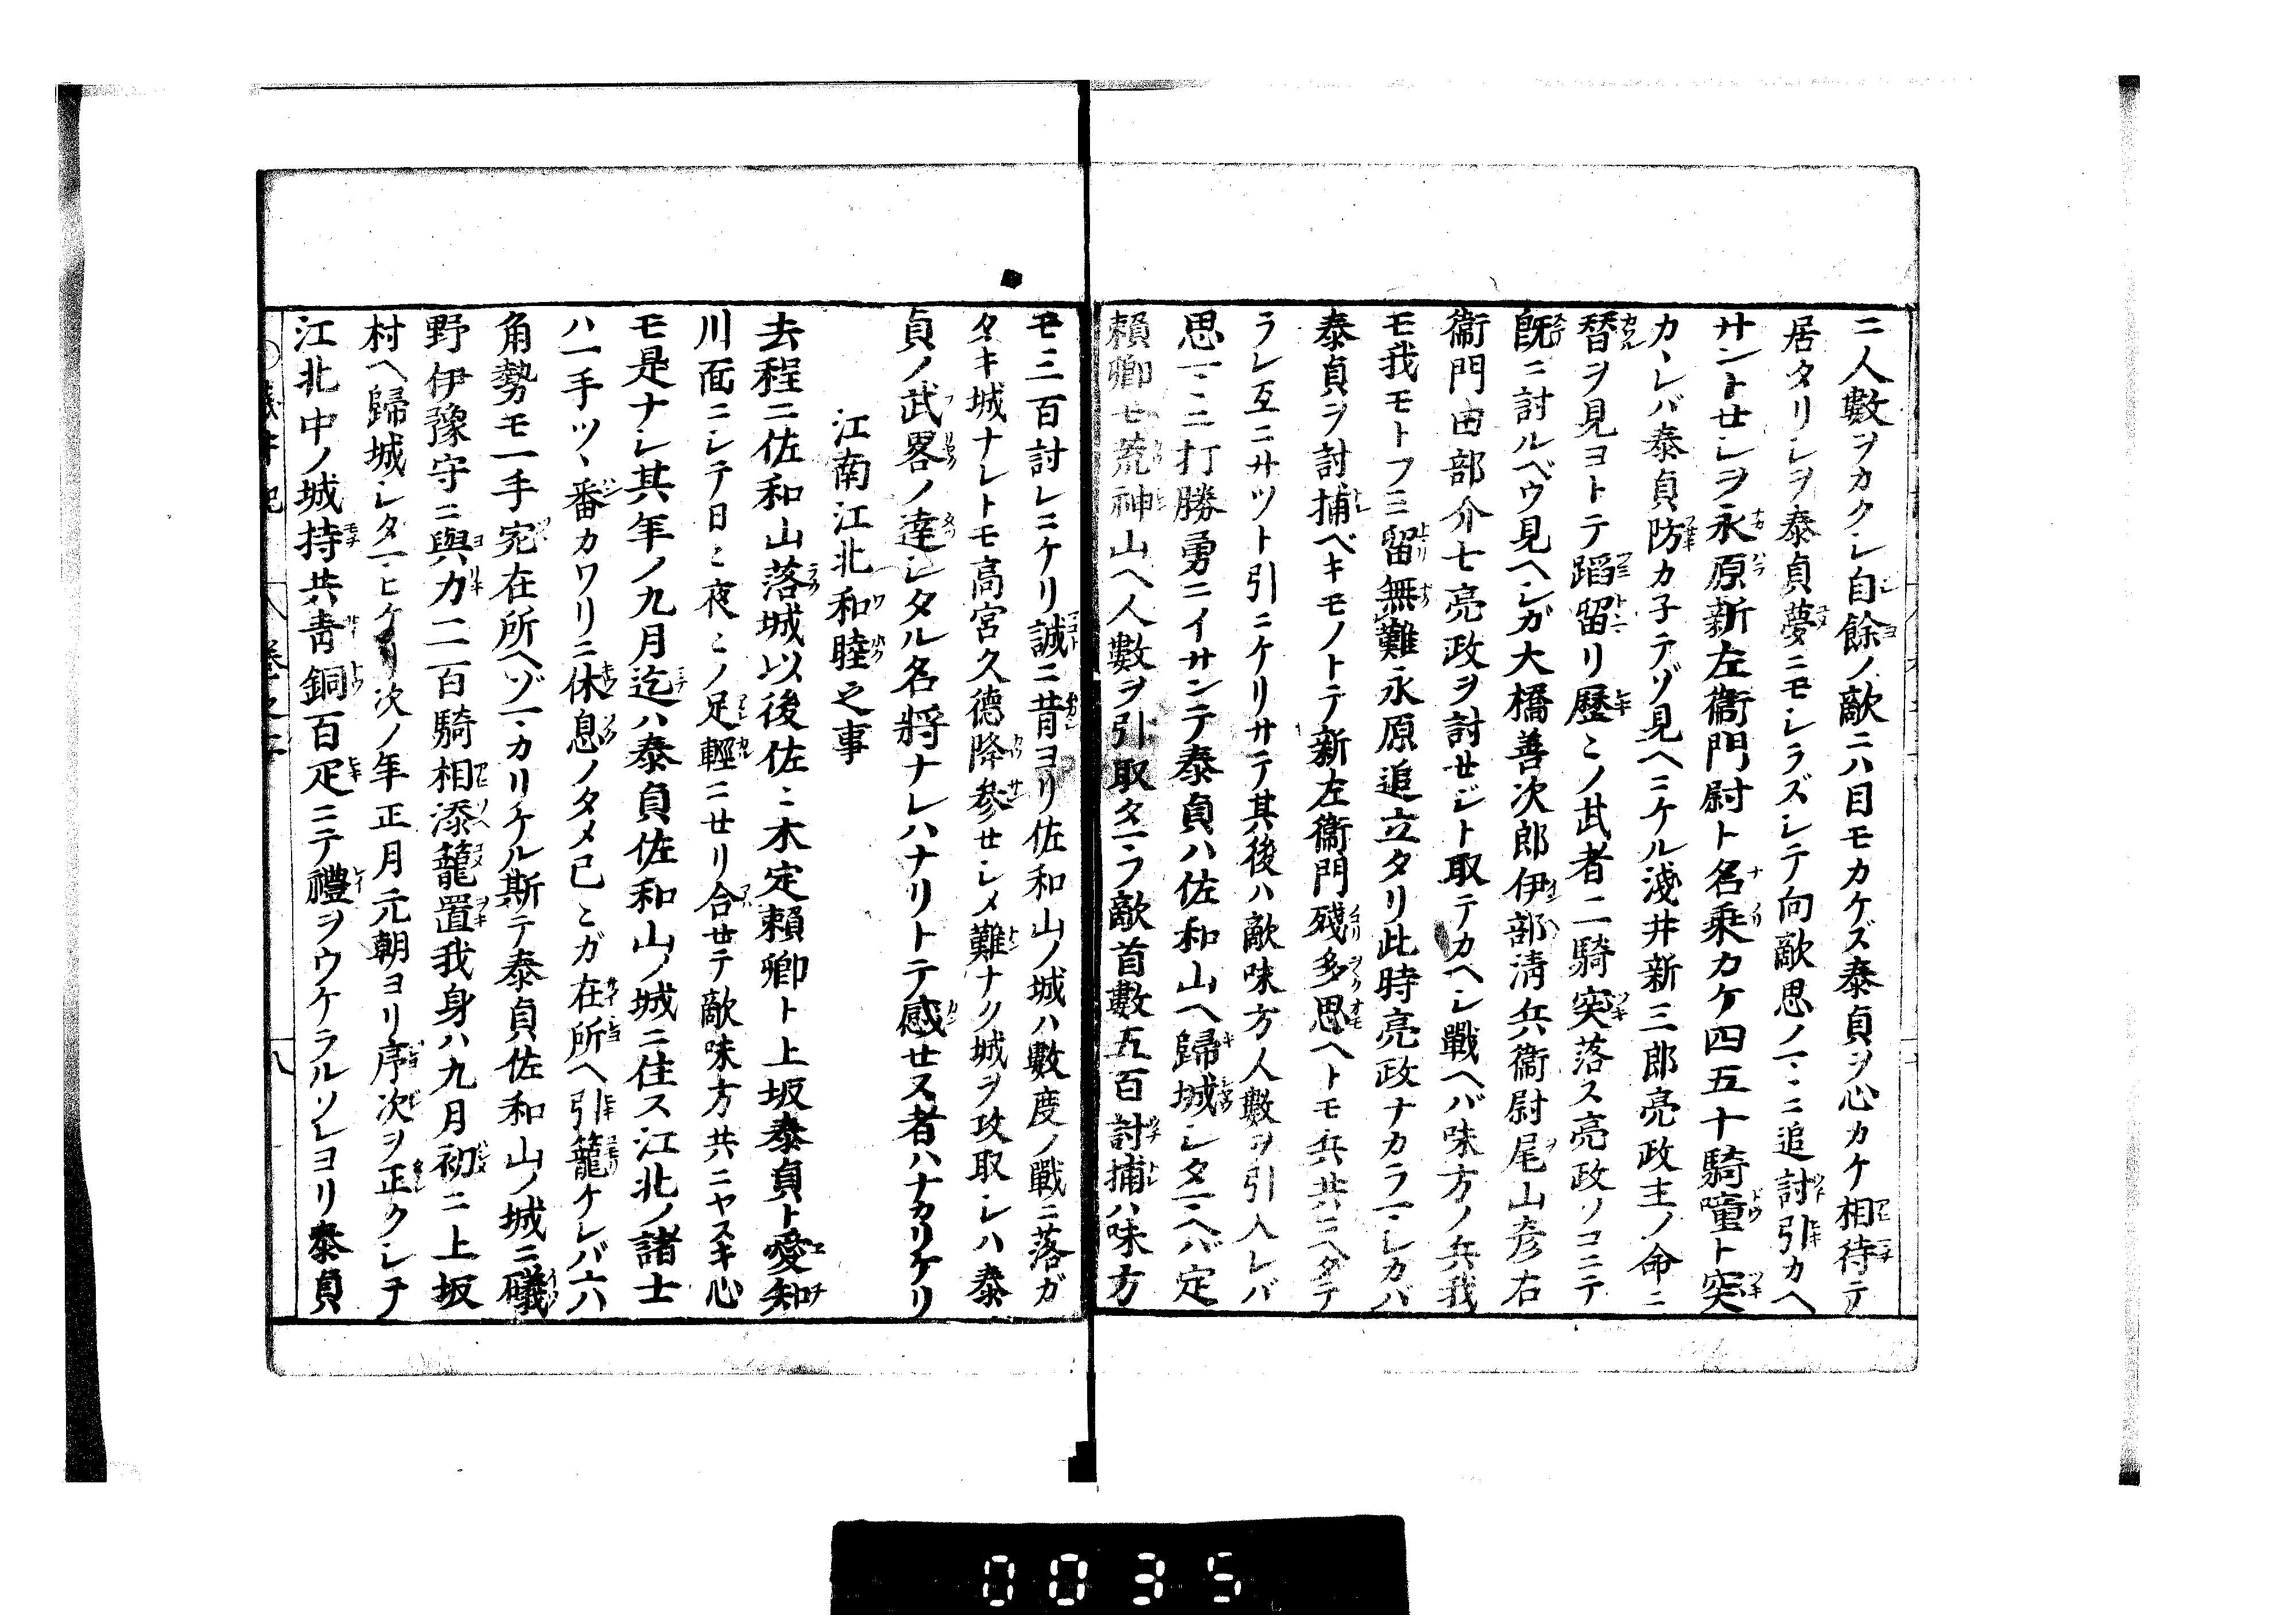 ニ人數ヲカクシ自餘ノ敵ニハ目モカケズ泰貞ヲ心カケ相待テ
居タリシヲ泰貞夢ニモシラズシテ向敵思ノマヽニ追討引カヘ
サントせシヲ永原新左衞門尉ト名乗カケ四五十騎噇ト突
カヽレバ泰貞防カ子テゾ見ヘニケル淺井新三郎亮政主ノ命ニ
替ヲ見ヨトテ蹈留リ歷〻ノ武者二騎突落ス亮政ソコニテ
既ニ討ルベウ見ヘシガ大橋善次郎伊部淸兵衞尉尾山彥右
衞門田部介七亮政ヲ討せジト取テカヘシ戰ヘバ味方ノ兵我
モ我モトフミ留無難永原追立タリ此時亮政ナカラマシカバ
泰貞ヲ討捕ベキモノトテ新左衞門殘多思ヘトモ兵共ニヘダテ
ラレ互ニサツト引ニケリサテ其後ハ敵味方人數ヲ引入レバ
思マヽニ打勝勇ニイサンテ泰貞ハ佐和山ヘ歸城シタマヘバ定
賴卿モ荒神山ヘ人數ヲ引取タマフ敵首數五百討捕ハ味方
モ三百討レニケリ誠ニ昔ヨリ佐和山ノ城ハ數度ノ戰ニ落ガ
タキ城ナレトモ高宮久德降參せシメ難ナク城ヲ攻取シハ泰
貞ノ武畧ノ達シタル名將ナレハナリトテ感せヌ者ハナカリケリ
江南江北和睦之事
去程ニ佐和山落城以後佐〻木定賴卿ト上坂泰貞ト愛知
川面ニシテ日〻夜〻ノ足輕ニせリ合せテ敵味方共ニヤスキ心
モ是ナシ其年ノ九月迄ハ泰貞佐和山ノ城ニ住ス江北ノ諸士
ハ一手ツヽ番カワリニ休息ノタメ己〻ガ在所ヘ引籠ケレバ六
角勢モ一手宛在所ヘゾマカリケル斯テ泰貞佐和山ノ城ニ礒
野伊豫守ニ與力二百騎相添籠置我身ハ九月初ニ上坂
村ヘ歸城シタマヒケリ次ノ年正月元朝ヨリ序次ヲ正クシテ
江北中ノ城持共靑銅百疋ニテ禮ヲウケラルソレヨリ泰貞
八
0035